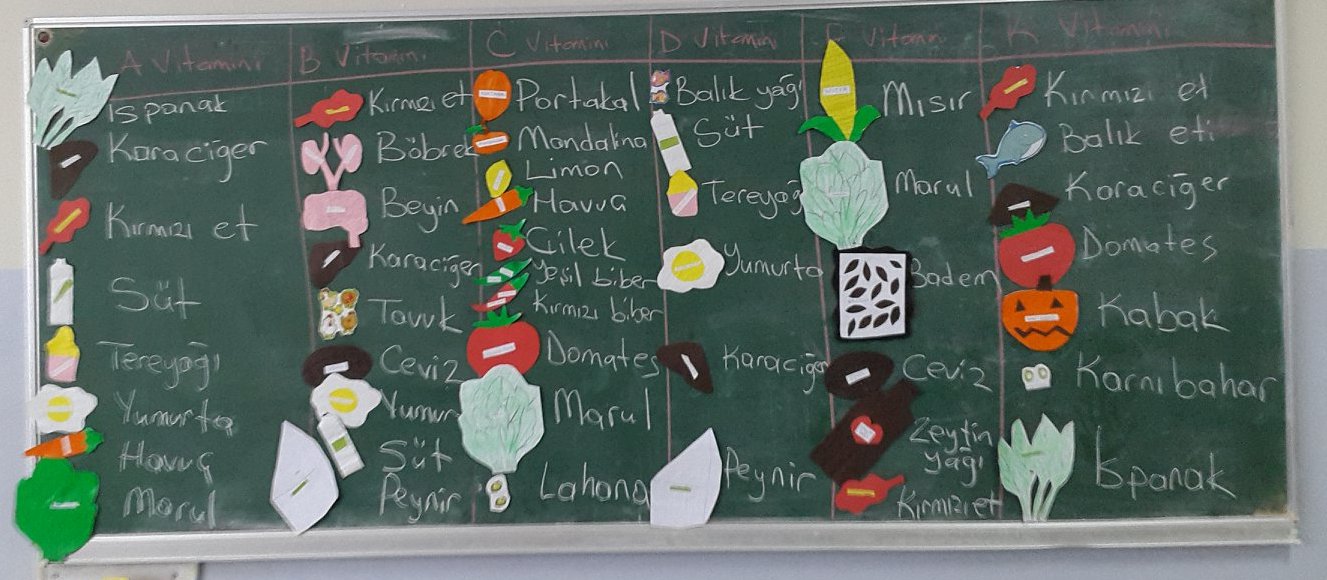 A Vitamini
Ispanak
Karaciğer
Kırmızı et
Süt
Tereyağı
Yumurta
Havuç
Marul
B Vitamini
Kırmızı et
Böbrek
Beyin
Karaciğer
Tavuk
Ceviz
Yumur
Süt
Peynir
C Vitamini
Portakal
Mandalina
Limon
Havuç
Çilek
Yeşil biber
Kırmızı biber
Domates
Marul
Lahana
D Vitamini
Balık yağı
Süt
Tereyağ
Yumurta
Karaciğe
Peynir
E Vitamini
Mısır
Marul
Badem
Ceviz
Zeytin
yağı
Kırmızı et
K Vitamini
Kırmızı et
Balık eti
Karaciğer
Domates
Kabak
Karnıbahar
Ispanak